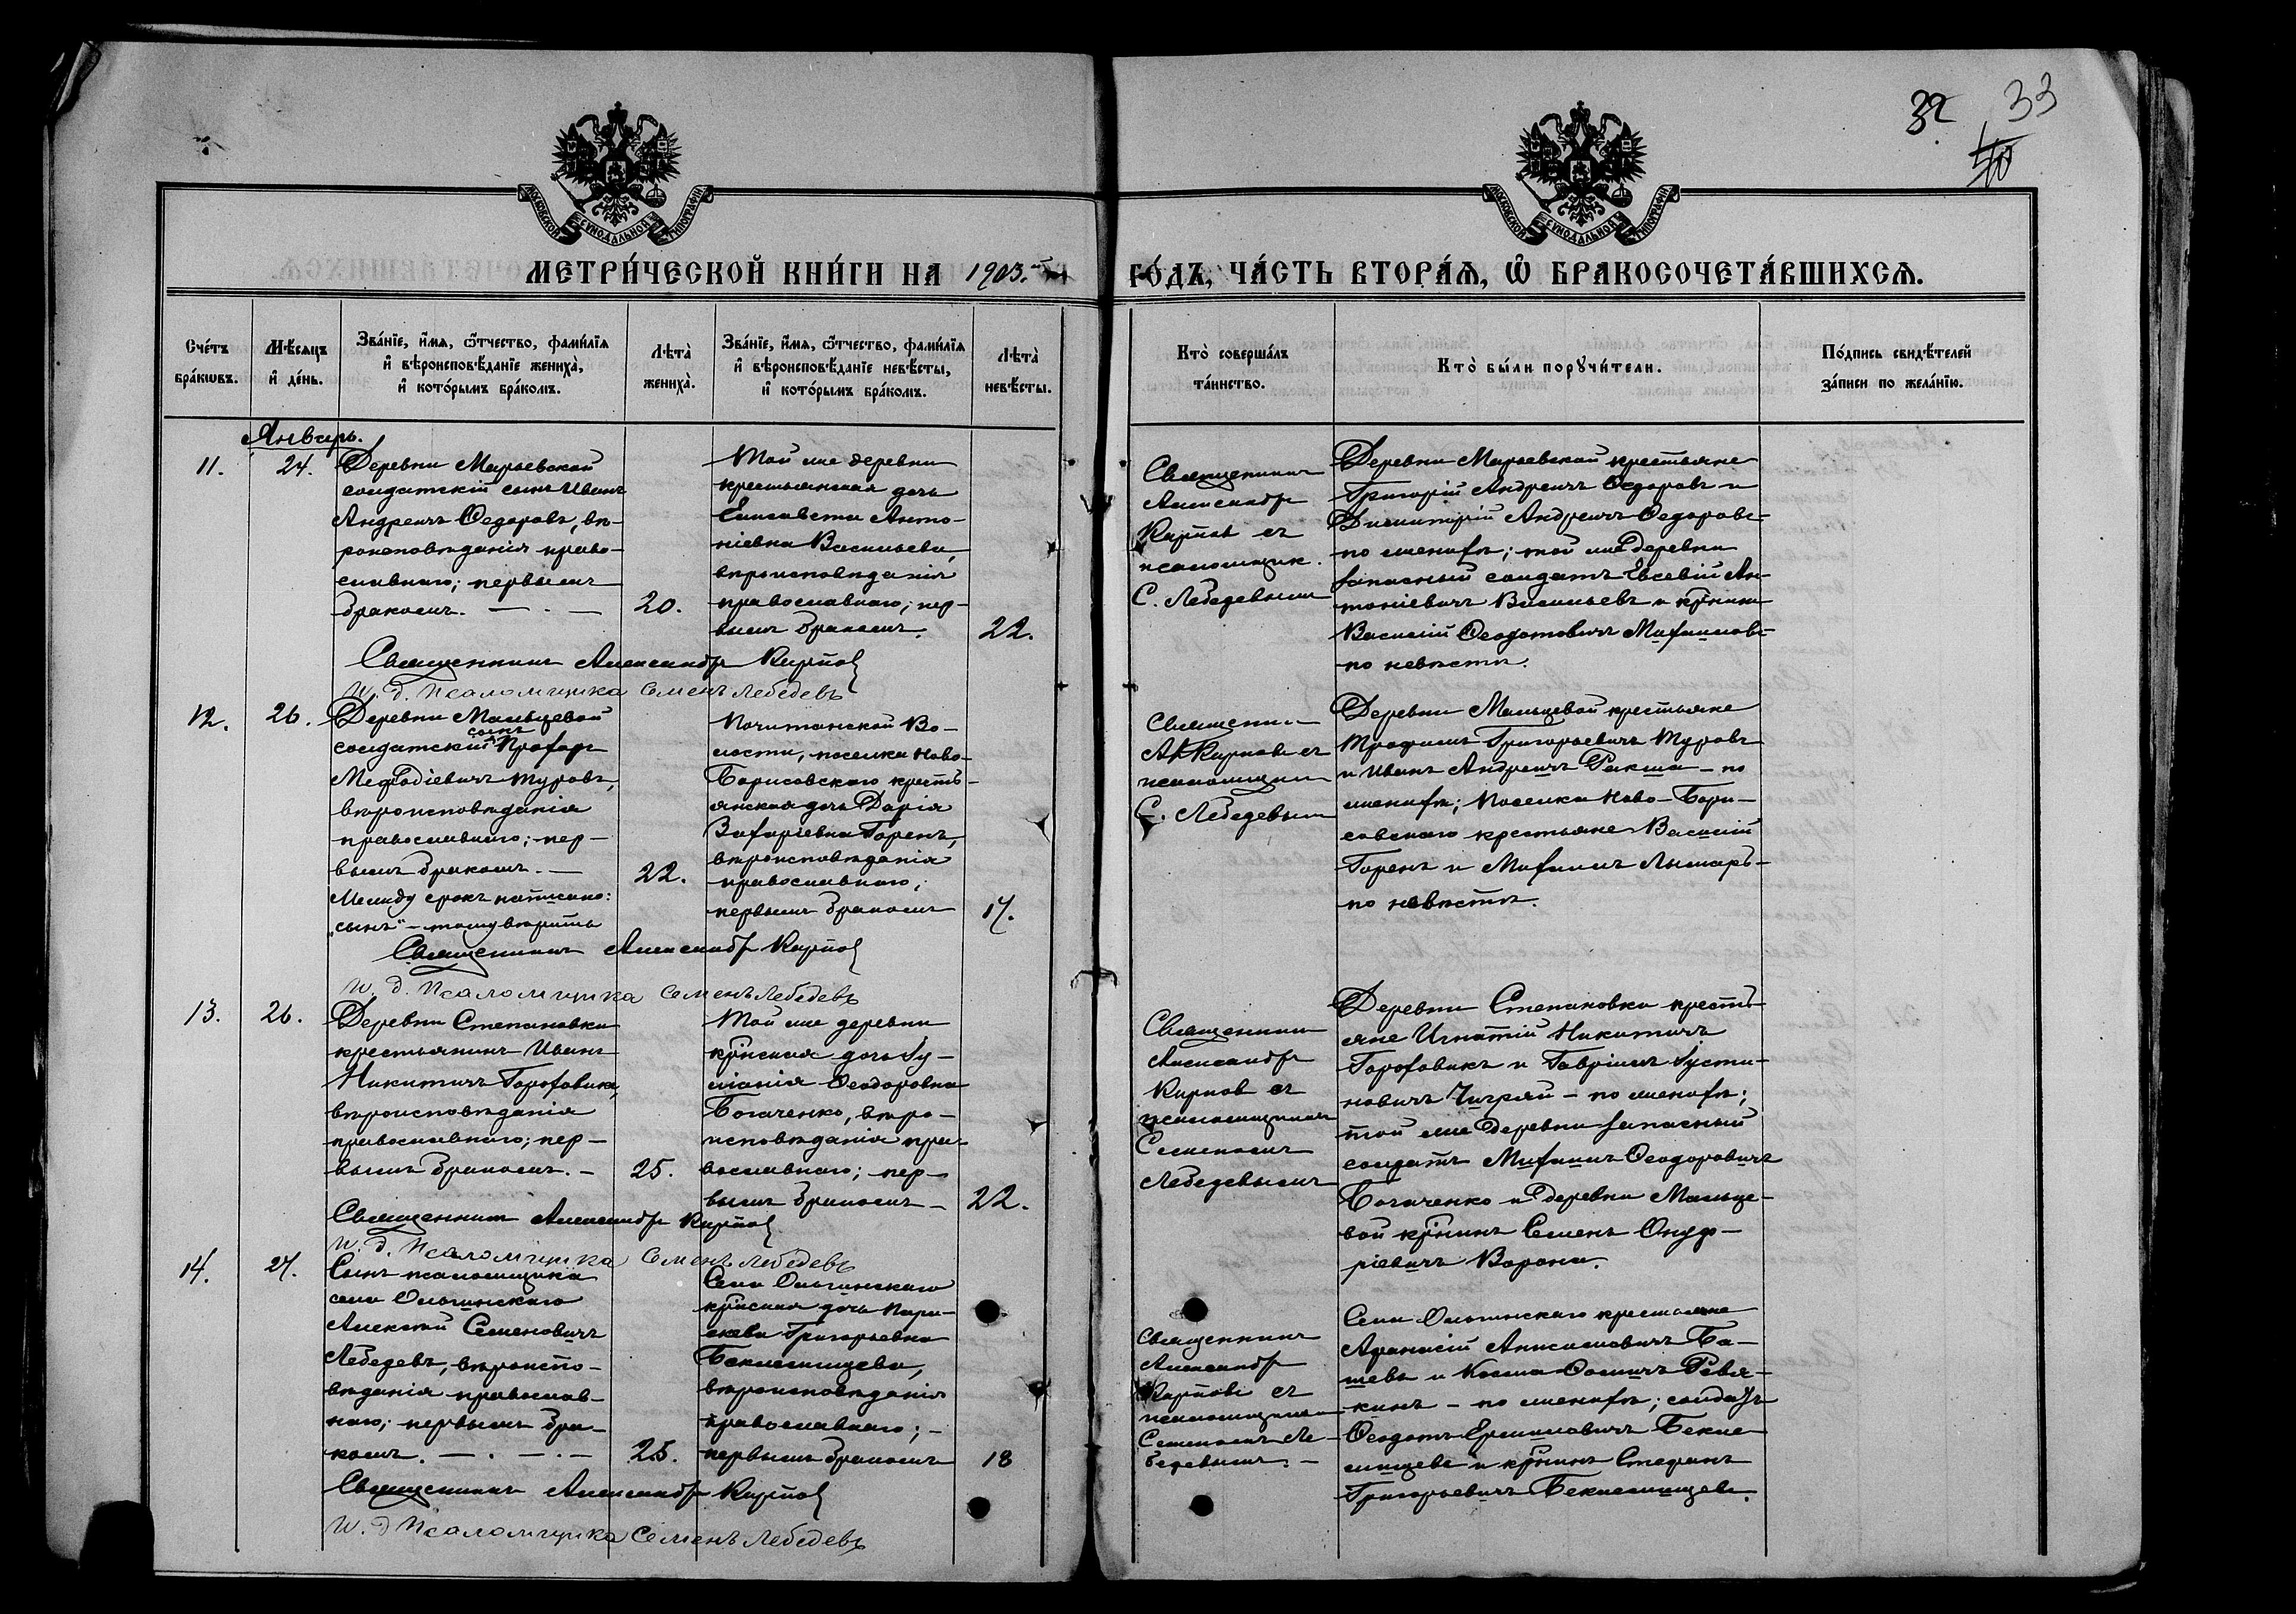 32 33
40
МОСКОВСКОЙ СѴНОДАЛЬНОЙ ТИПОГРАФІИ
МОСКОВСКОЙ СѴНОДАЛЬНОЙ ТИПОГРАФІИ
МЕТРИ́ЧЕСКОЙ КНИ́ГИ НА 1903.
ГО́ДЪ, ЧА́СТЬ ВТОРА́Ѧ, Ѽ БРАКОСОЧЕТА́ВШИХСѦ.
Сче́тъ
бра́кѡвъ.
Мѣ́сяцъ
и҆ де́нь.
Зва́нїе, и҆́мя, ѻ҆́тчество, фами́лїя
и҆ вѣроисповѣ́данїе жениха̀,
и҆ кото́рымъ бра́комъ.
Лѣта̀
жениха̀.
Зва́нїе, и҆́мя, ѻ҆́тчество, фами́лїя
и҆ вѣроисповѣ́данїе невѣ́сты,
и҆ кото́рымъ бра́комъ.
Лѣта̀
невѣ́сты.
Кто̀ соверша́лъ
та́инство.
Кто̀ бы́ли порꙋчи́тели.
По́дпись свидѣ́телей
за́писи по жела́нїю.
Январь.
11.
24.
Деревни Марьевской
солдатскій сынъ Иванъ
Андреичъ Ѳедоровъ, вѣ-
роисповѣданія право-
славнаго; первымъ
бракомъ. — . —
20.
Той же деревни
крестьянская дочь
Елисавета Анто-
ніевна Васильева,
вѣроисповѣданія
православнаго; пер-
вымъ бракомъ.
22.
Священникъ
Александръ
Карповъ съ
псаломщик.
С. Лебедевымъ
Деревни Марьевской крестьяне
Григорій Андреичъ Ѳедоровъ и
Димитрій Андреичъ Ѳедоровъ-
по женихѣ; той же деревни
запасный солдатъ Евсевій Ан-
тоніевичъ Васильевъ и кр̃нинъ
Василій Ѳеодотовичъ Михайловъ-
по невѣстѣ.
Священникъ Александръ Карповъ
И. д. Псаломщика Семенъ Лебедевъ
12.
26.
Деревни Мальцевой
сынъ
солдатскій Прохоръ
Меѳодіевичъ Туровъ,
вѣроисповѣданія
православнаго; пер-
вымъ бракомъ. —
Между срокъ написано:
„сынъ“ — тому вѣрить
22.
Почитанской Во-
лости, поселка Ново-
Борисовскаго кресть-
янская дочь Дарія
Захаріевна Горенъ,
вѣроисповѣданія
православнаго;
первымъ бракомъ
17.
Священникъ
А. Карповъ съ
псаломщикомъ
С. Лебедевымъ
Деревни Мальцевой крестьяне
Трофимъ Григорьевичъ Туровъ
и Иванъ Андреичъ Ракша — по
женихѣ; поселка Ново-Бори-
совскаго крестьяне Василій
Горенъ и Михаилъ Лымарь-
по невѣстѣ.
Священникъ Александръ Карповъ
И. д. Псаломщика Семенъ Лебедевъ
13.
26.
Деревни Степановки
крестьянинъ Иванъ
Никитичъ Гороховикъ,
вѣроисповѣданія
православнаго; пер-
вымъ бракомъ. —
25.
Той же деревни
кр̃нская дочь Іу-
ліанія Ѳеодоровна
Богаченко, вѣро-
исповѣданія пра-
вославнаго; пер-
вымъ бракомъ —
22.
Священникъ
Александръ
Карповъ съ
псаломщикомъ
Семеномъ
Лебедевымъ
Деревни Степановки кресть-
яне Игнатій Никитичъ
Гороховикъ и Гавріилъ Іусти-
новичъ Чигряй — по женихѣ;
той же деревни запасный
солдатъ Михаилъ Ѳеодоровичъ
Богаченко и деревни Мальце-
вой кр̃нинъ Семенъ Онуф-
ріевичъ Ворона.
Священникъ Александръ Карповъ
И. д. Псаломщика Семенъ Лебедевъ
14.
27.
Сынъ псаломщика
села Ольгинскаго
Алексѣй Семеновичъ
Лебедевъ, вѣроиспо-
вѣданія православ-
наго; первымъ бра-
комъ. — . — . —
25.
Села Ольгинскаго
кр̃нская дочь Пара-
скева Григорьевна
Беклемищева,
вѣроисповѣданія
православнаго; —
первымъ бракомъ
18
Священникъ
Александръ
Карповъ съ
псаломщикомъ
Семеномъ Ле-
бедевымъ. —
Села Ольгинскаго крестьяне
Аѳанасій Анисимовичъ Ба-
шевъ и Косма Ѳомичъ Ревя-
кинъ — по женихѣ; солдатъ
Ѳеодотъ Ермиловичъ Бекле-
мищевъ и кр̃нинъ Стефанъ
Григорьевичъ Беклемищевъ.
Священникъ Александръ Карповъ
И. д Псаломщика Семенъ Лебедевъ